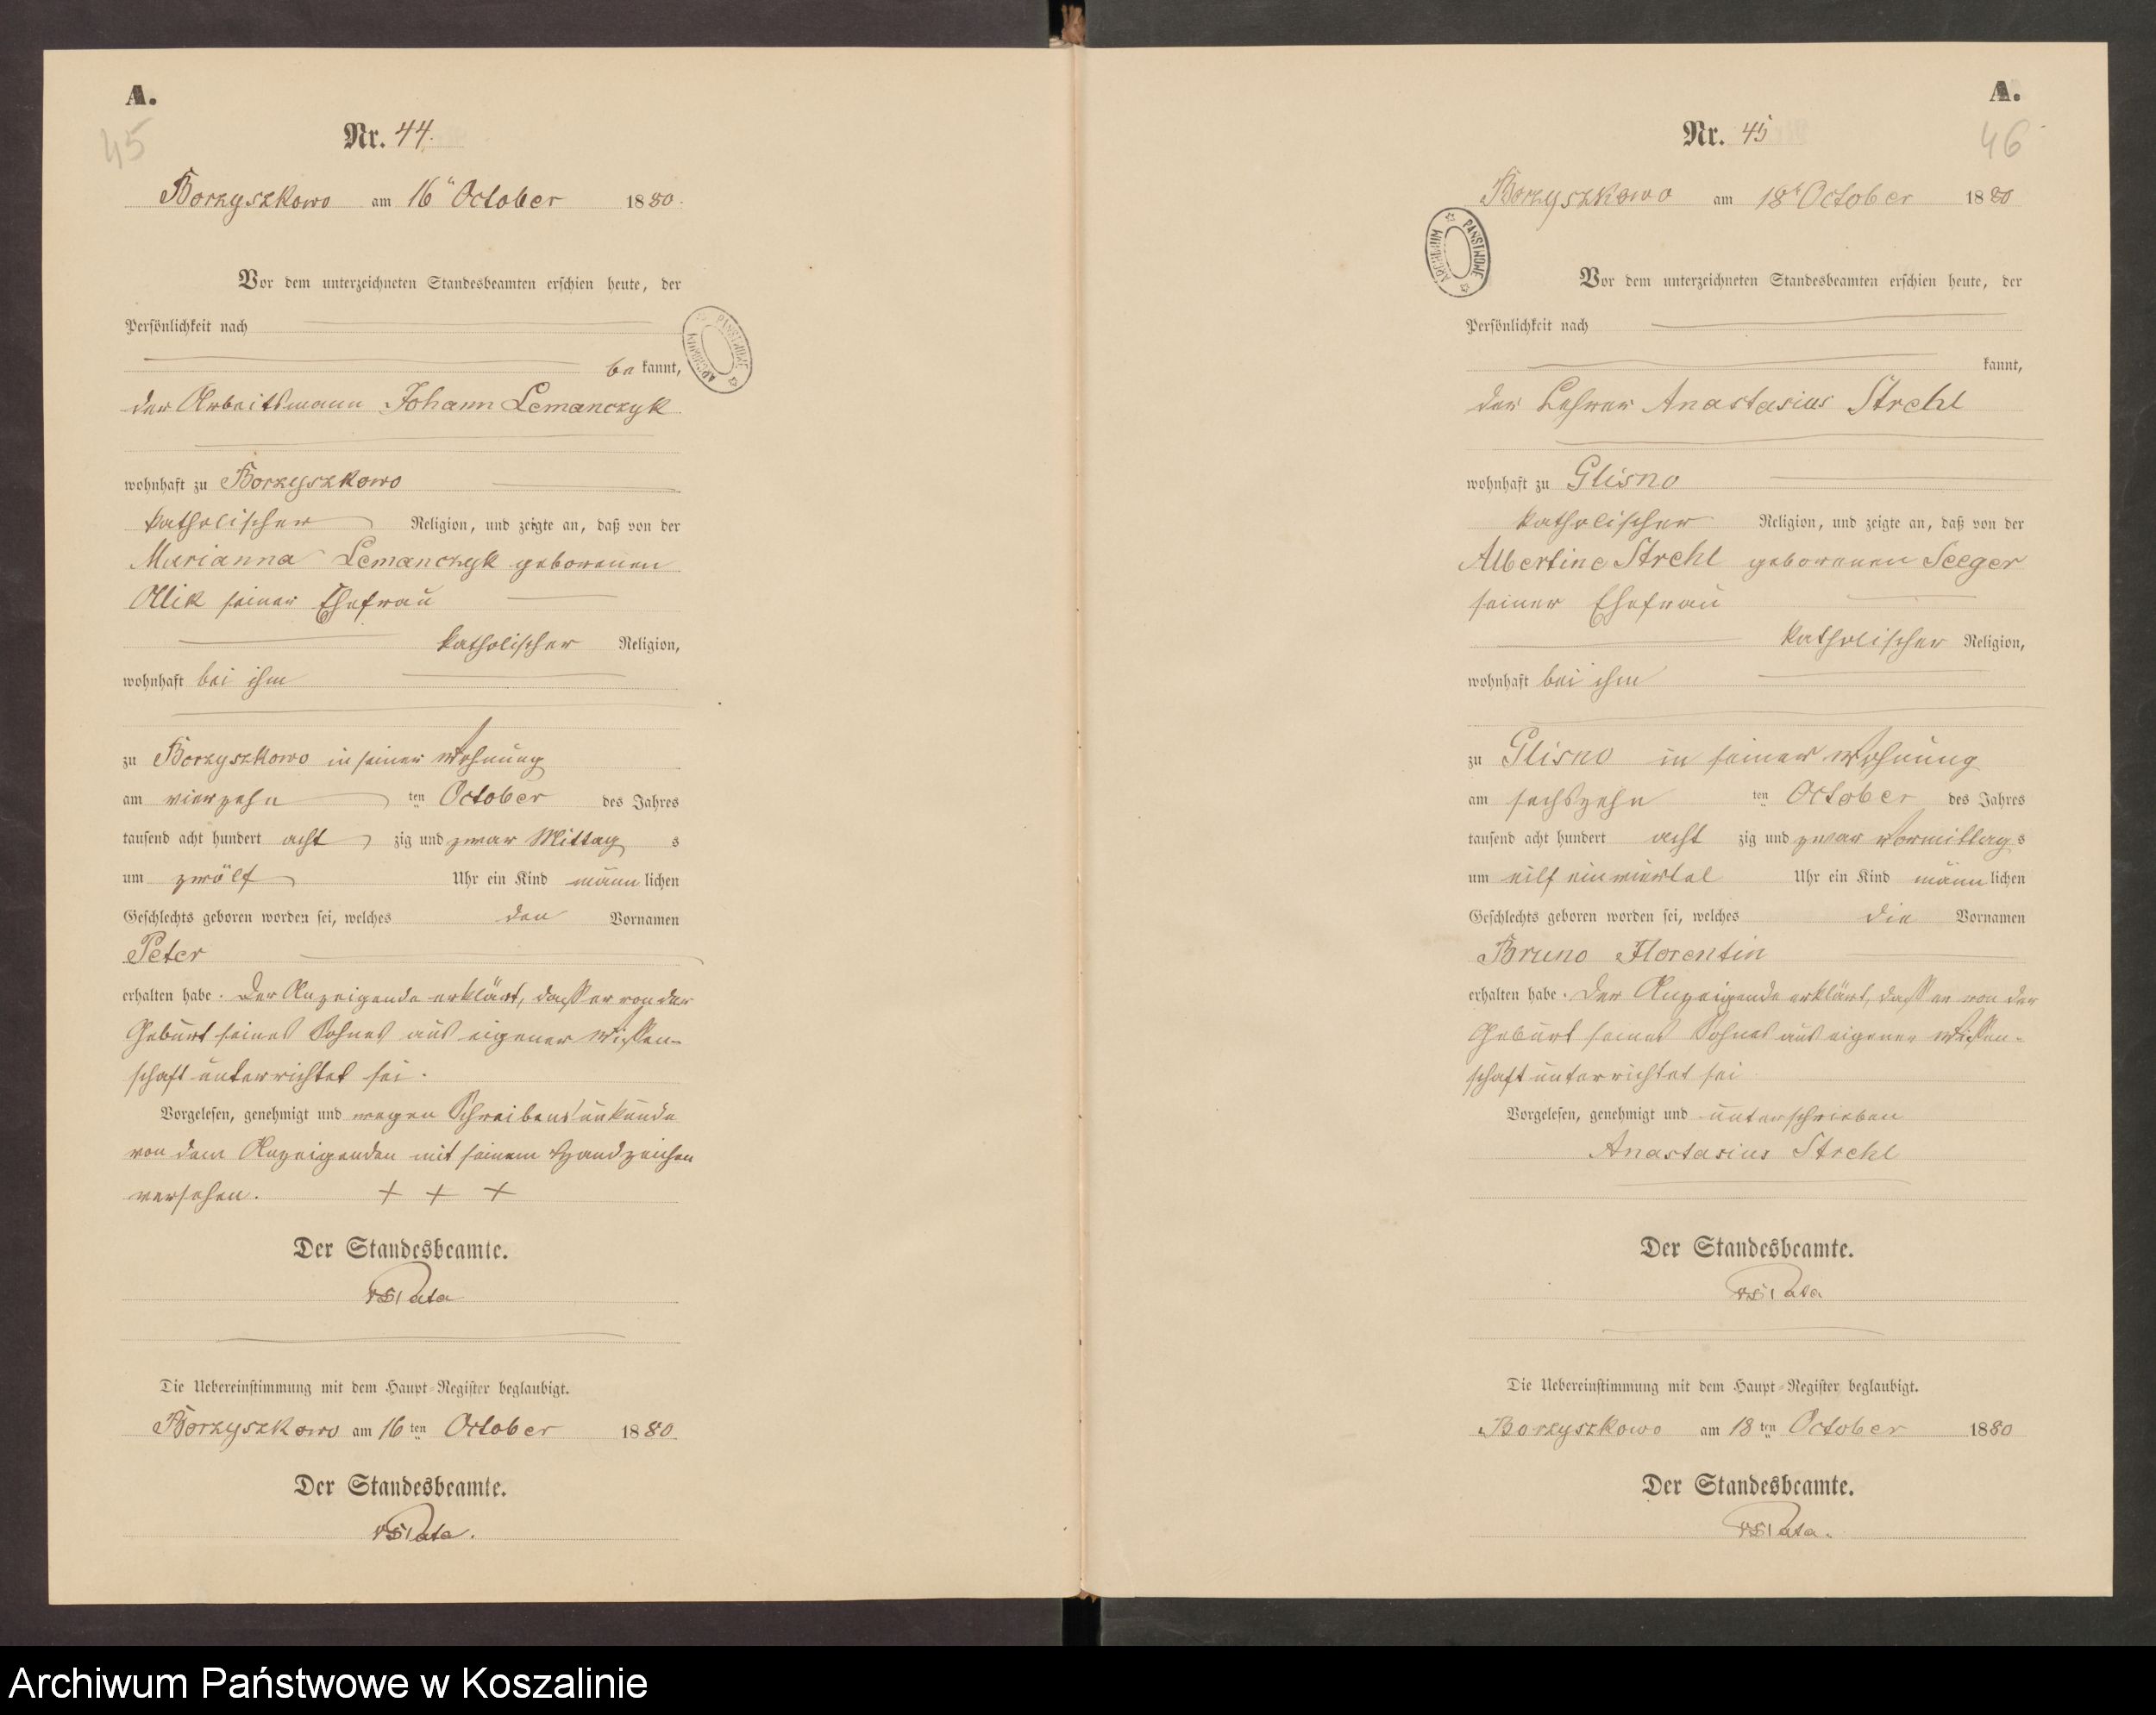 A.
45
Nr. 44.
Borzyszkowo am 16ten October 1880.
Vor dem unterzeichneten Standesbeamten erschien heute, der
Persönlichkeit nach
be kannt,
der Arbeitsmann Johann Lemanczyk
wohnhaft zu Borzyszkowo
katholischer Religion, und zeigte an, daß von der
Marianna Lemanczyk geborenen
Ollik seiner Ehefrau
katholischer Religion,
wohnhaft bei ihm
zu Borzyszkowo in seiner Wohnung
am vierzehn ten October des Jahres
tausend acht hundert acht zig und zwar Mittag s
um zwölf Uhr ein Kind männ lichen
Geschlechts geboren worden sei, welches den Vornamen
Peter
erhalten habe. Der Anzeigende erklärt, dass er von der
Geburt seines Sohnes aus eigener Wissen-
schaft unterrichtet sei.
Vorgelesen, genehmigt und wegen Schreibensunkunde
von dem Anzeigenden mit seinem Handzeichen
versehen. + + +
Der Standesbeamte.
Die Uebereinstimmung mit dem Haupt-Register beglaubigt.
Borzyszkowo am 16 ten October 1880
Der Standesbeamte.
A.
46
Nr. 45
Borzyszkowo am 18t October 1880
ARCHIWUM PAŃSTWOWE
Vor dem unterzeichneten Standesbeamten erschien heute, der
Persönlichkeit nach
kannt,
der Lehrer Anastasius Strehl
wohnhaft zu Glisno
katholischer Religion, und zeigte an, daß von der
Albertine Strehl geborenen Seeger
seiner Ehefrau
katholischer Religion,
wohnhaft bei ihm
zu Glisno in seiner Wohnung
am sechszehn ten October des Jahres
tausend acht hundert acht zig und zwar Vormittag s
um eilf einviertel Uhr ein Kind männ lichen
Geschlechts geboren worden sei, welches die Vornamen
Bruno Florentin
erhalten habe. Der Anzeigende erklärt, dass er von der
Geburt seines Sohnes aus eigener Wissen-
schaft unterrichtet sei
Vorgelesen, genehmigt und unterschrieben
Anastasius Strehl
Der Standesbeamte.
Die Uebereinstimmung mit dem Haupt-Register beglaubigt.
Borzyszkowo am 18 ten October 1880
Der Standesbeamte.
Archiwum Państwowe w Koszalinie